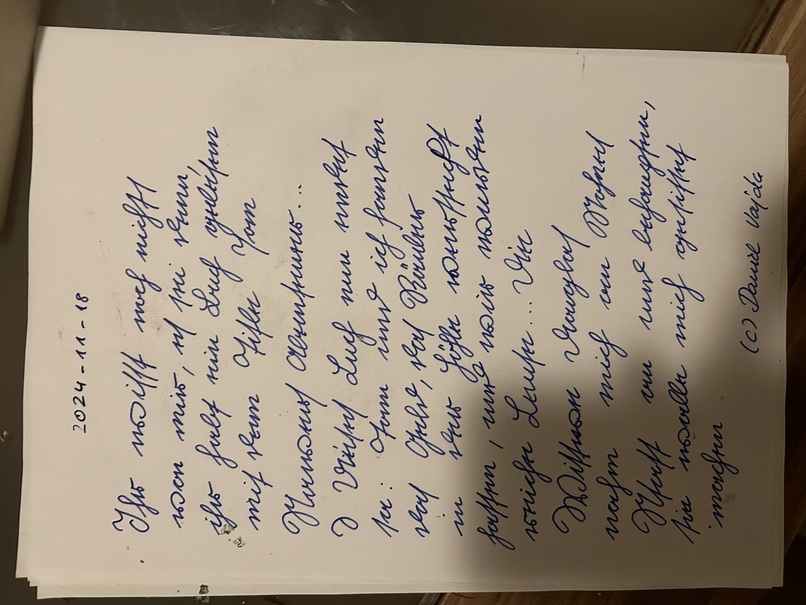 2024-11-18
Ihr wisst noch nichts
von mir, es sei denn,
ihr habt ein Buch gelesen
mit dem Titel Tom
Abenteuer...
D Dieses Buch nun endet
so: Tom und ich fanden
das Geld, das Räuber
in der Höhle versteckt
hatten, und wir wurden
reiche Leute... Die
Douglas
nahm mich an Sohnes
Statt an und
sie wolle mich gesittet
machen
(c) Daniel Vajda